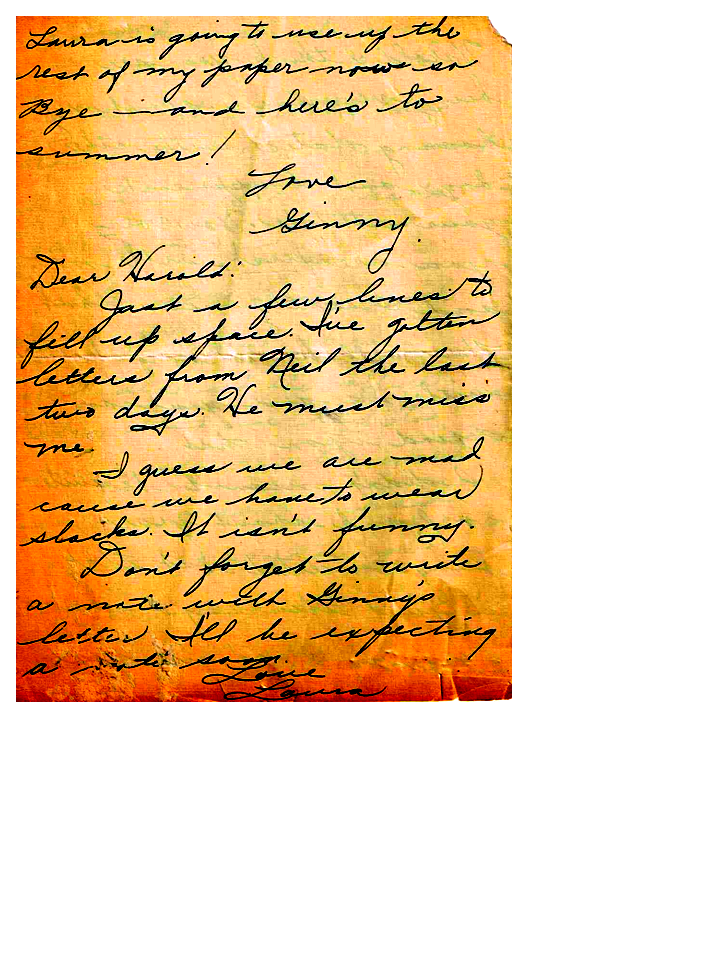 Laura is going to use up the
rest of my paper now so
Bye — and here's to
summer!
Love
Ginny.
Dear Harold:
Just a few lines to
fill up space. I've gotten
letters from Neil the last
two days. He must miss
me.
I guess we are mad
cause we have to wear
slacks. It isn't funny.
Don't forget to write
a note with Ginny's
letter. I'll be expecting
a note soon.
Love
Laura